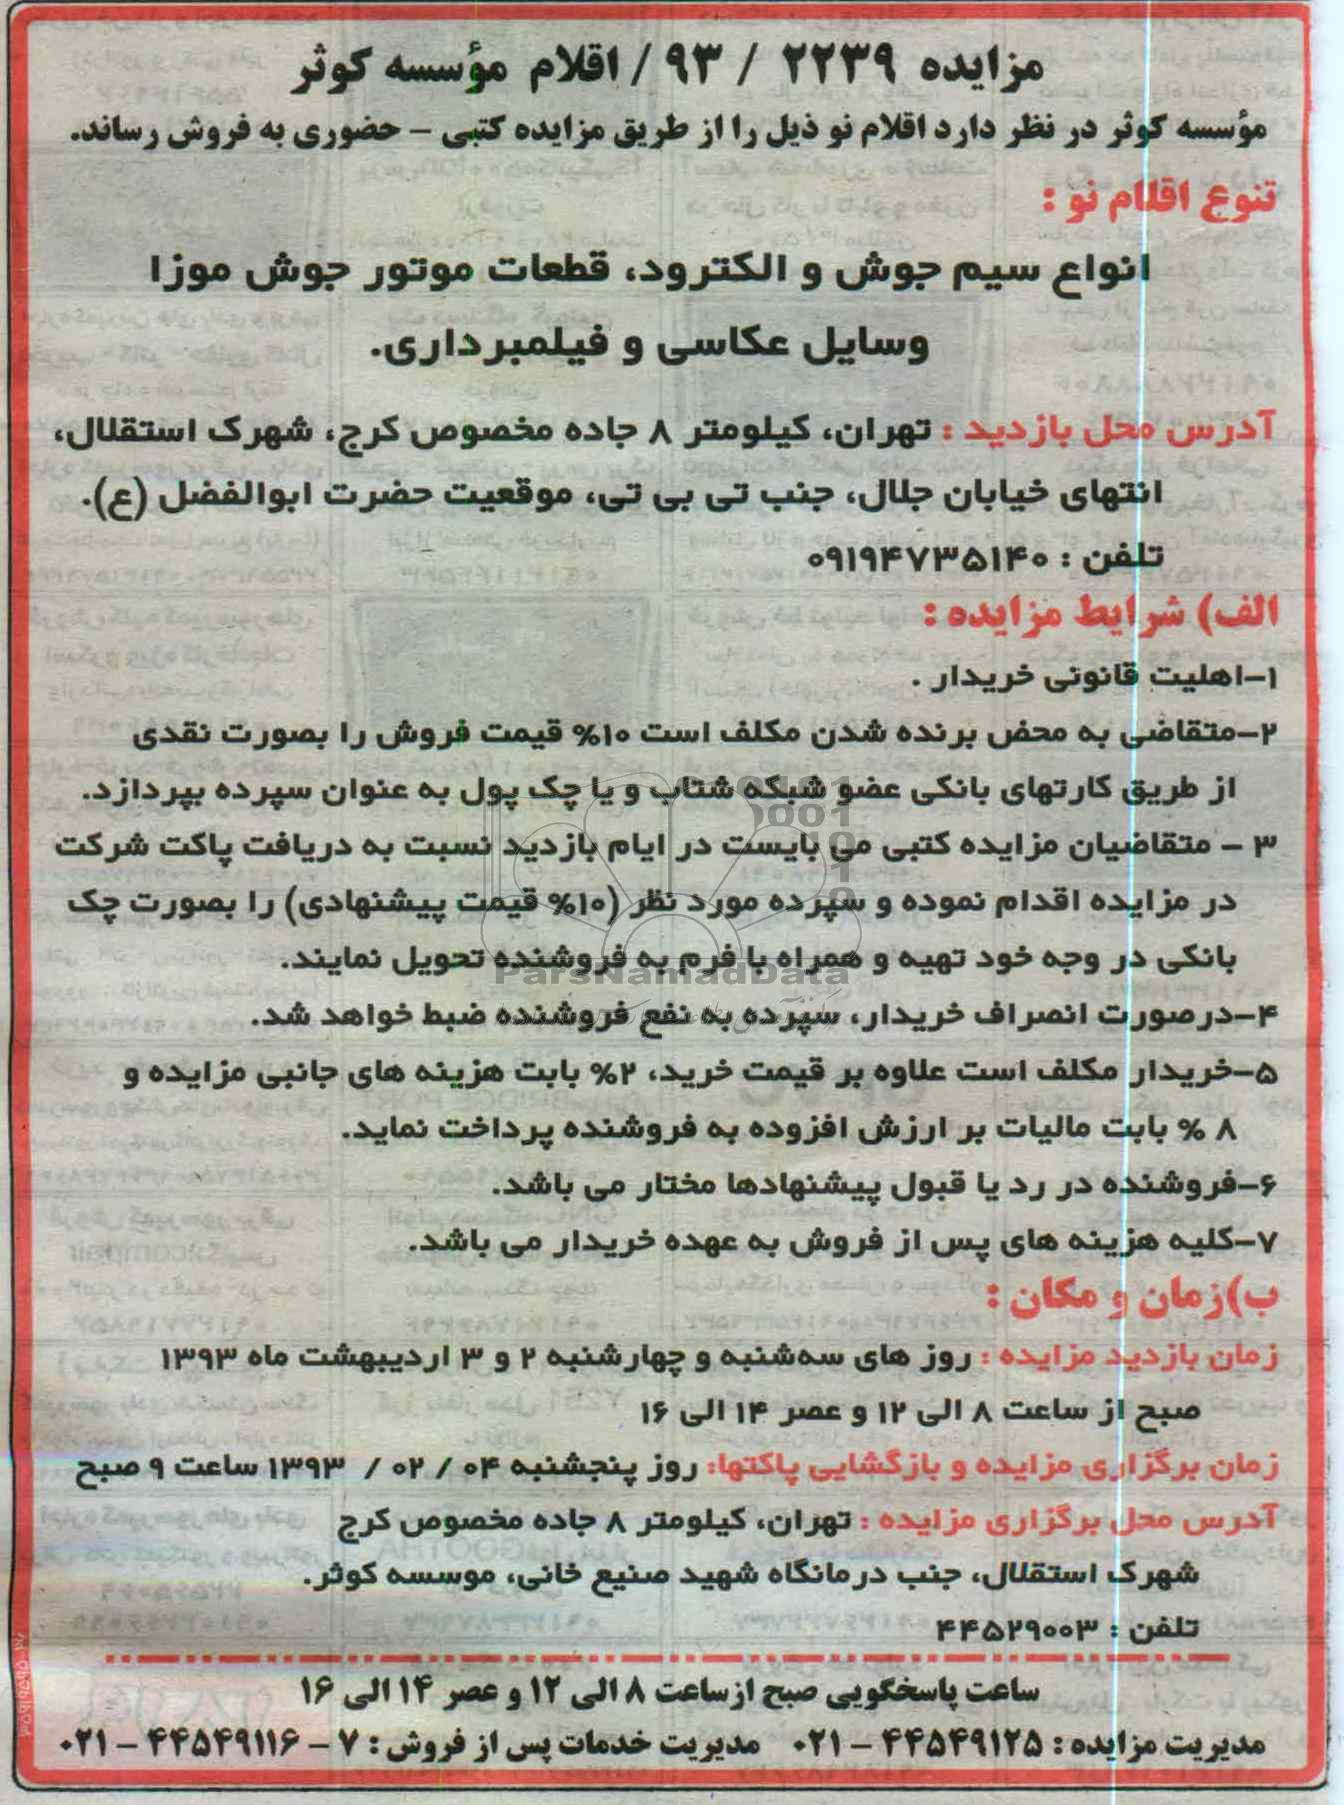 مزایده ۲۲۳۹ / ۹۳/ اقلام مؤسسه کوثر
مؤسسه کوثر در نظر دارد اقلام نو ذیل را از طریق مزایده کتبی - حضوری به فروش رساند.
تنوع اقلام نو :
انواع سیم جوش و الکترود، قطعات موتور جوش موزا
وسایل عکاسی و فیلمبرداری.
آدرس محل بازدید : تهران، کیلومتر ۸ جاده مخصوص کرج، شهرک استقلال،
انتهای خیابان جلال، جنب تی بی تی، موقعیت حضرت ابوالفضل (ع).
تلفن : ۰۹۱۹۴۷۳۵۱۴۰
الف) شرایط مزایده :
۱-اهلیت قانونی خریدار .
۲-متقاضی به محض برنده شدن مکلف است ۱۰% قیمت فروش را بصورت نقدی
از طریق کارتهای بانکی عضو شبکه شتاب و یا چک پول به عنوان سپرده بپردازد.
۳ - متقاضیان مزایده کتبی می بایست در ایام بازدید نسبت به دریافت پاکت شرکت
در مزایده اقدام نموده و سپرده مورد نظر (۱۰% قیمت پیشنهادی) را بصورت چک
بانکی در وجه خود تهیه و همراه با فرم به فروشنده تحویل نمایند.
ParsNamadData
۴-درصورت انصراف خریدار، سپرده به نفع فروشنده ضبط خواهد شد.
۵-خریدار مکلف است علاوه بر قیمت خرید، ۲% بابت هزینه های جانبی مزایده و
۸ % بابت مالیات بر ارزش افزوده به فروشنده پرداخت نماید.
۶-فروشنده در رد یا قبول پیشنهادها مختار می باشد.
۷-کلیه هزینه های پس از فروش به عهده خریدار می باشد.
ب)زمان و مکان :
زمان بازدید مزایده : روز های سه‌شنبه و چهارشنبه ۲ و ۳ اردیبهشت ماه ۱۳۹۳
صبح از ساعت ۸ الی ۱۲ و عصر ۱۴ الی ۱۶
زمان برگزاری مزایده و بازگشایی پاکتها: روز پنجشنبه ۰۴ / ۰۲ / ۱۳۹۳ ساعت ۹ صبح
آدرس محل برگزاری مزایده : تهران، کیلومتر ۸ جاده مخصوص کرج
شهرک استقلال، جنب درمانگاه شهید صنیع خانی، موسسه کوثر.
تلفن : ۴۴۵۲۹۰۰۳
ساعت پاسخگویی صبح ازساعت ۸ الی ۱۲ و عصر ۱۴ الی ۱۶
مدیریت مزایده : ۴۴۵۴۹۱۲۵ - ۰۲۱ مدیریت خدمات پس از فروش : ۷ - ۴۴۵۴۹۱۱۶ - ۰۲۱